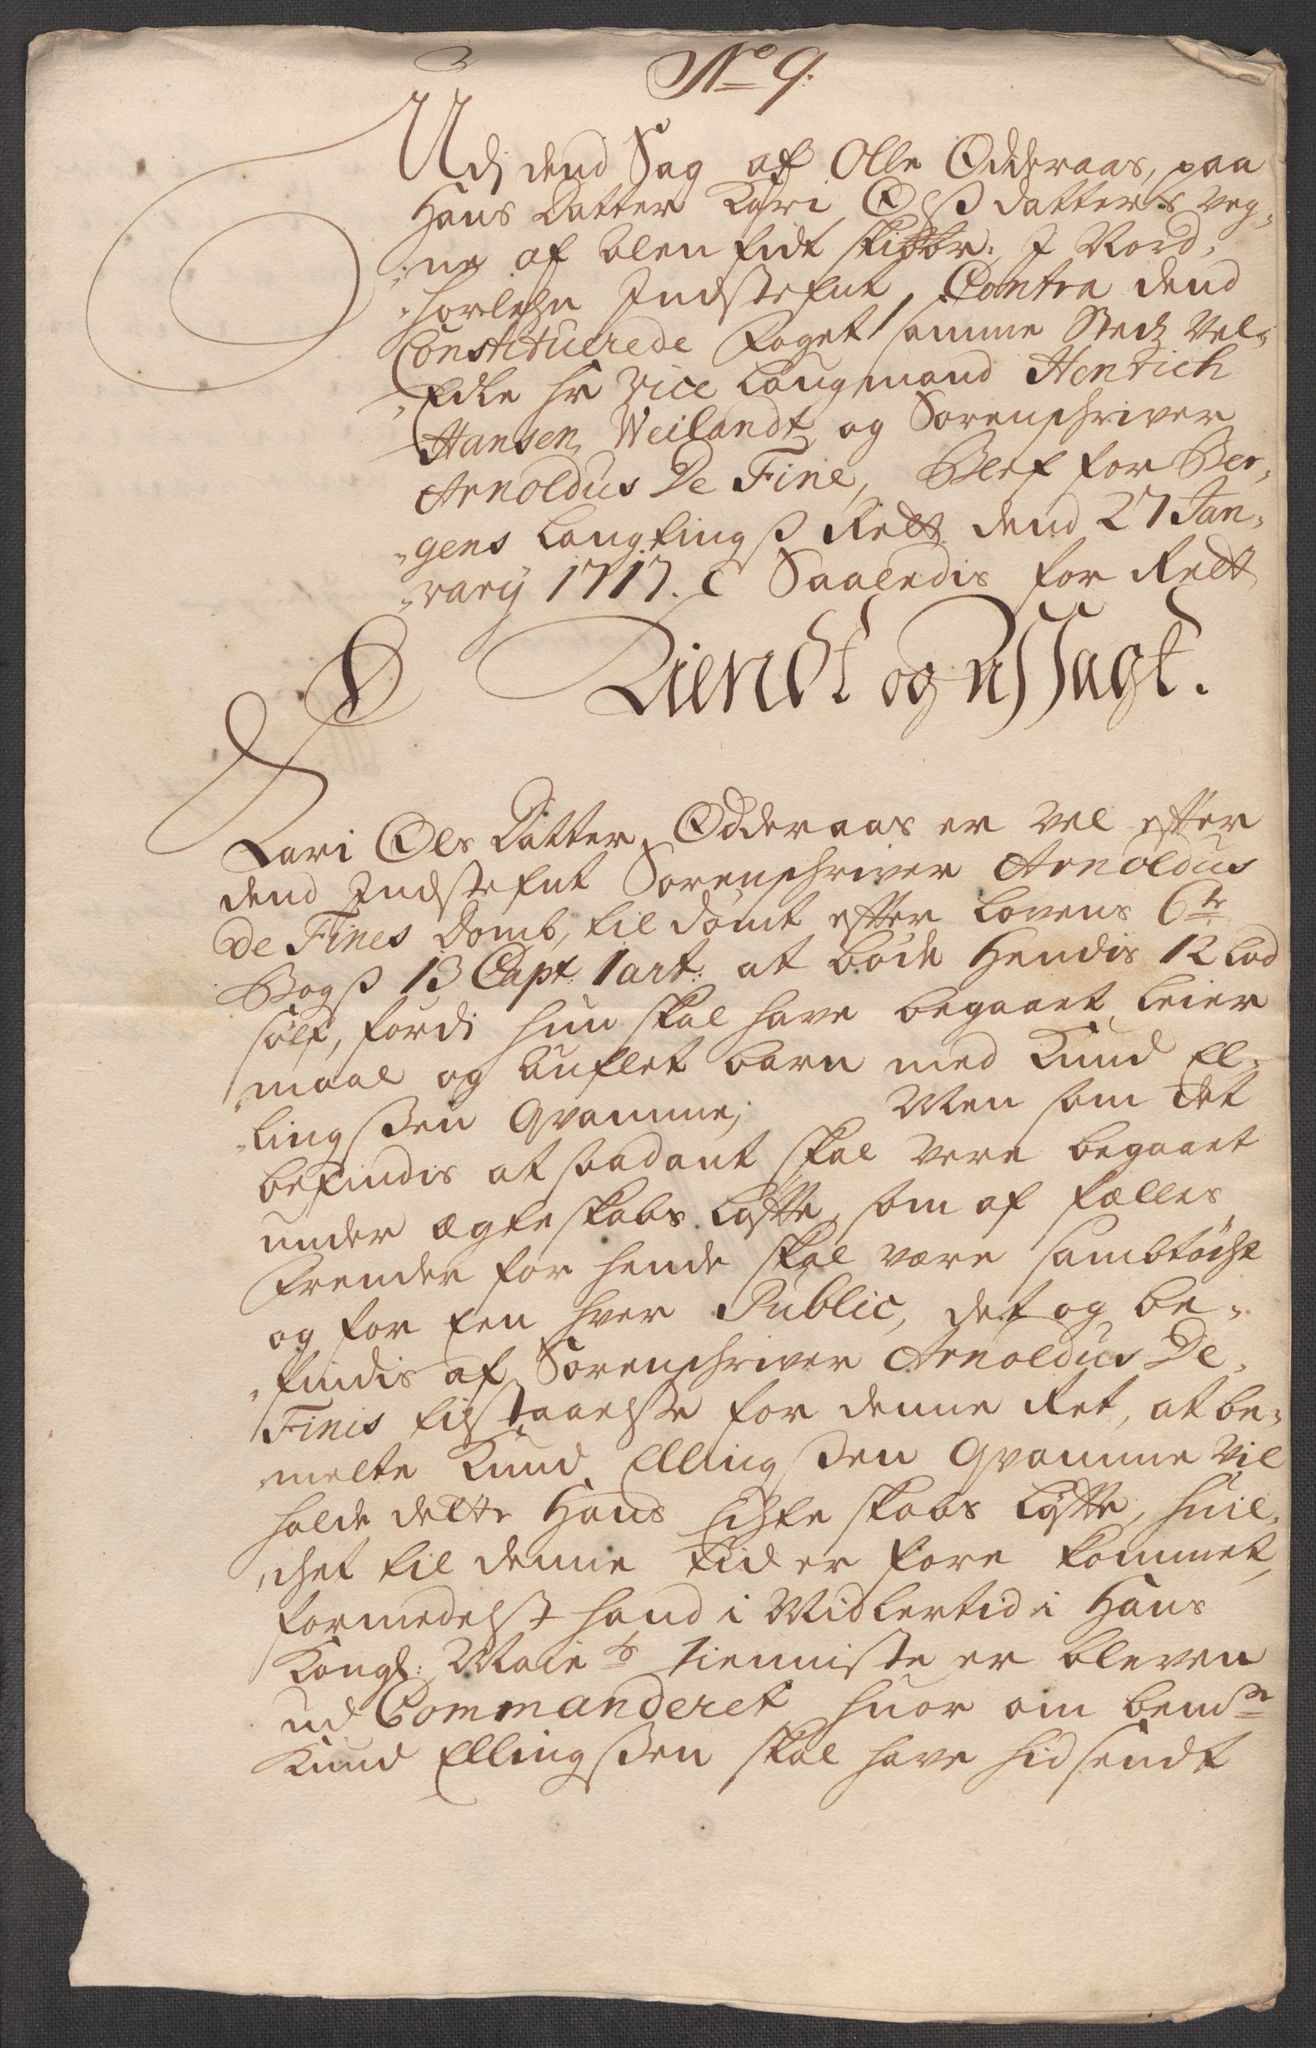 No 9.
Udj dend Sag af Olle Odderaas, paa
Hans Datter Kari Olsß datters Veg„
„ne af Alenfidt skibbr: J Nord„
„horlehn Jndstefnt, Contra dend
Constituerede Foget samme Stedz Vel„
„Edle Hr Vice Laugmand Henrich
Hansen Weilandt og Sorenschriver
Arnoldus De Fine, Blef for Ber„
„gens Laugtingß Rett dend 27 Jan„
„varij 1717. Saaledis for Rett
Kiendt og Afsagt.
Kari Ols Datter Odderaas er vel efter
dend Jndstefnt Sorenschriver Arnoldus
De Fines Domb, til dömt efter Lovens 6te
Bogß 13 Capt: 1 art: at böde Hendis 12 Lod
sölf, fordj hun skal have begaaet Leier
„maal og Auflet barn med Knud El„
„lingßen Qvamme; Men som det
befindis at saadant skal vere begaaet
under ægteskabs Löfte, som af fælles
Frender for hende skal være sambtöcht
og for Een hver Public, det og be„
„findis af Sorenschriver Arnoldus De
Finis tilstaaelse for denne Ret, at be„
„melte Knud Ellingßen Qvamme vil
holde dette Hans Echteskabs Löfte, huil„
„chet til denne tid er fore kommet,
formedelst hand i Midlertid i Hans
Kongl: Maiets tienniste er bleven
ud Commanderet, huor om bemte
Knud Ellingßen skal have hidsendt